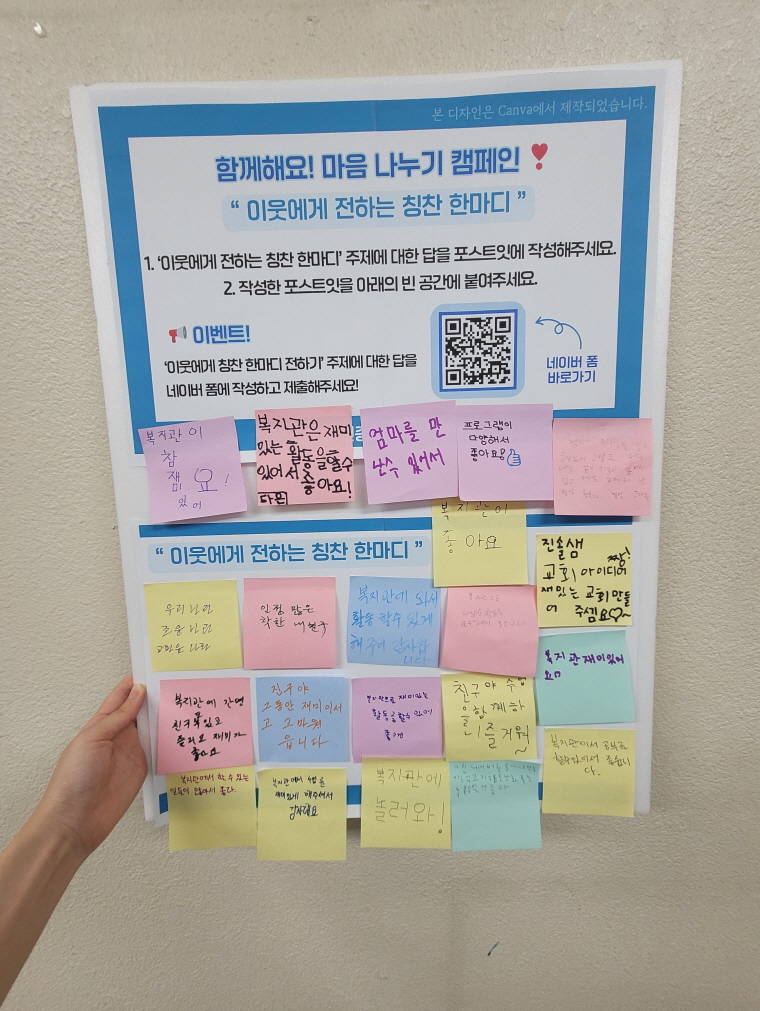 본 디자인은 Canva에서 제작되었습니다.
함께해요! 마음 나누기 캠페인
“ 이웃에게 전하는 칭찬 한마디 ”
1. ‘이웃에게 전하는 칭찬 한마디’ 주제에 대한 답을 포스트잇에 작성해주세요.
2. 작성한 포스트잇을 아래의 빈 공간에 붙여주세요.
이벤트!
‘이웃에게 칭찬 한마디 전하기’ 주제에 대한 답을
네이버 폼에 작성하고 제출해주세요!
네이버 폼
바로가기
복지관이
참
잼요!
있어
복지관은 재미
있는 활동을 할수
있어서 좋아요!
다은
엄마를 만
난수 있어서
프로그램이
다양해서
좋아요!
복지관이
좋아요
“ 이웃에게 전하는 칭찬 한마디 ”
진솔샘 짱!
교회 아이디어
재있는 교회 만들
어 주셈요
우리
인정 많은
착한 내 친구
복지관에 와서
활동 할수 있게
해주어 감사합
니다
복지관재미있어
요
복지관에 가면
친구도 있고
즐겁고 재미가
좋아요
친구야
그동안 재미이서
고 고마웠
읍니다
복지관으로 재미있는
활동을 할수 있어
좋아
친구야 수업
을 함께하
니 즐거워~
복지관에서 공부를
할수있어서 좋습니
다.
복지관에서 할 수 있는
일들이 많아서 좋다.
복지관에서 수업을
재미있게 해주셔서
감사해요
복지관에
놀러와!